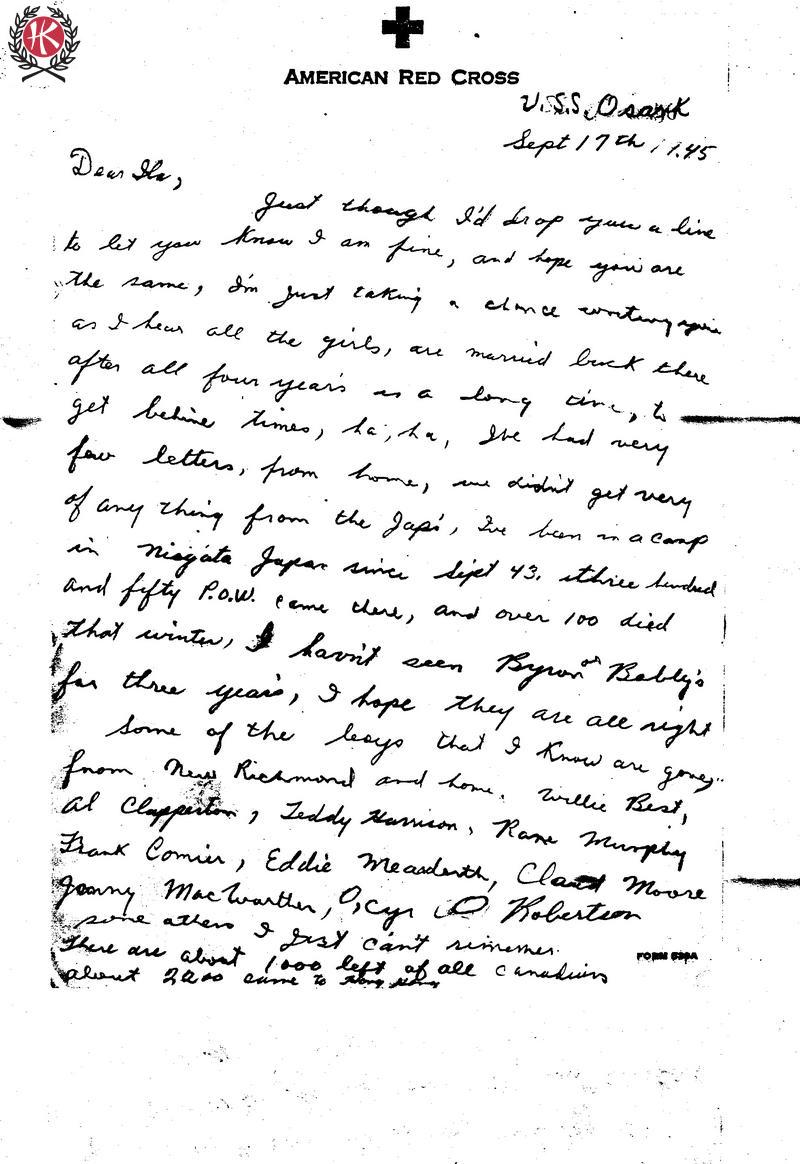 HK
AMERICAN RED CROSS
U.S.S. Osark
Sept 17th 1.45
Dear Ila,
Just though I'd drop you a line
to let you know I am fine, and hope you are
the same, I'm just taking a chance writing
as I hear all the girls, are married back there
after all four year's is a long time, to
get behine times, ha, ha, I've had very
few letters, from home, we didn't get very
of any thing from the Jap's, I've been in a camp
in Niagata Japan since Sept 43. three hundred
and fifty P.O.W. came there, and over 100 died
that winter, I havn't seen Byron or Bobby's
for three year's, I hope they are all right
Some of the boys that I know are gone,
from New Richmond and home. Willie Best,
Al Clapperton, Teddy Harrison, Rane Murphy
Frank Comier, Eddie Claud Moore
MacWarther, Cyr Robertson
some others I just can't rimember.
There are about 1000 left of all Canadians
about 2200 came to Hong Kong
FORM 539A